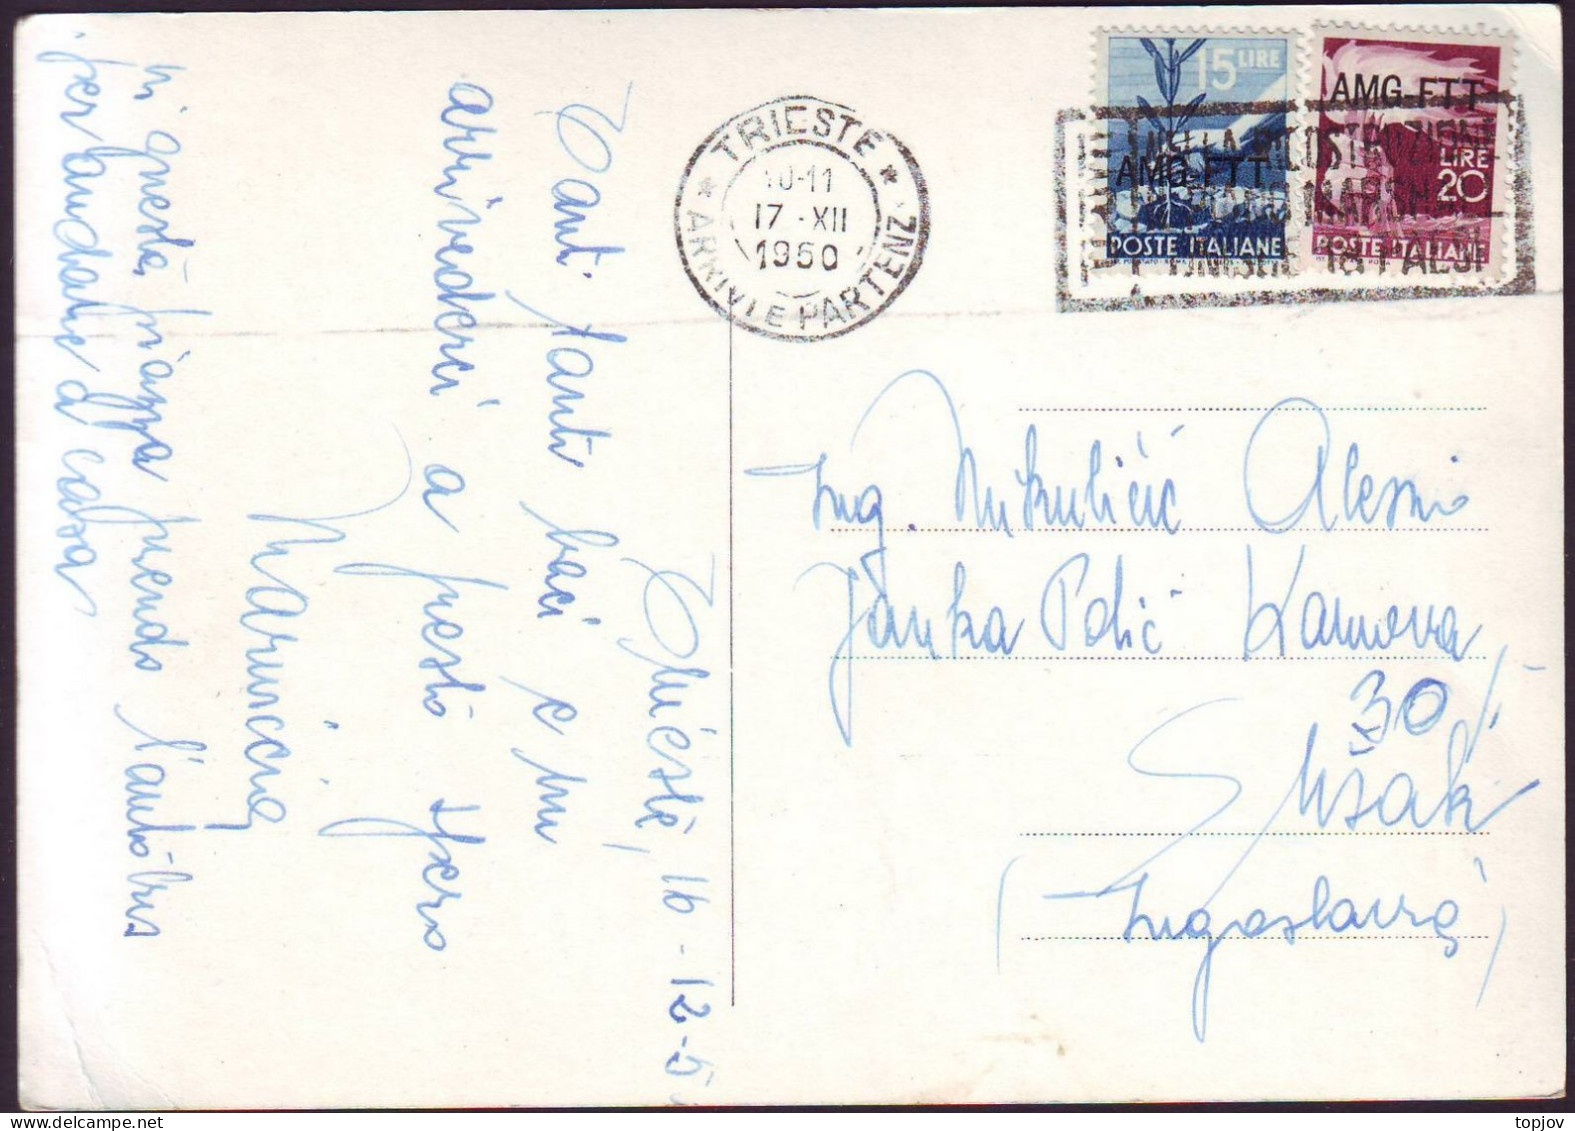 Trieste, 16-12-5
Tanti tanti baci e un
arrivederci a presto spero
Mariuccia
in questa piazza prendo l'autobus
per andare a casa
TRIESTE
10-11
17-XII
1950
ARRIVI E PARTENZ
15 LIRE
AMG-FTT
POSTE ITALIANE
AMG-FTT
LIRE
20
POSTE ITALIANE
NELLA RICOSTRUZIONE
MARSHALL
UNISCE 18 PAESI
Ing. Mikuličić Alessio
Janka Polić Kamova
30
Sušak
(Jugoslavia)
topjov